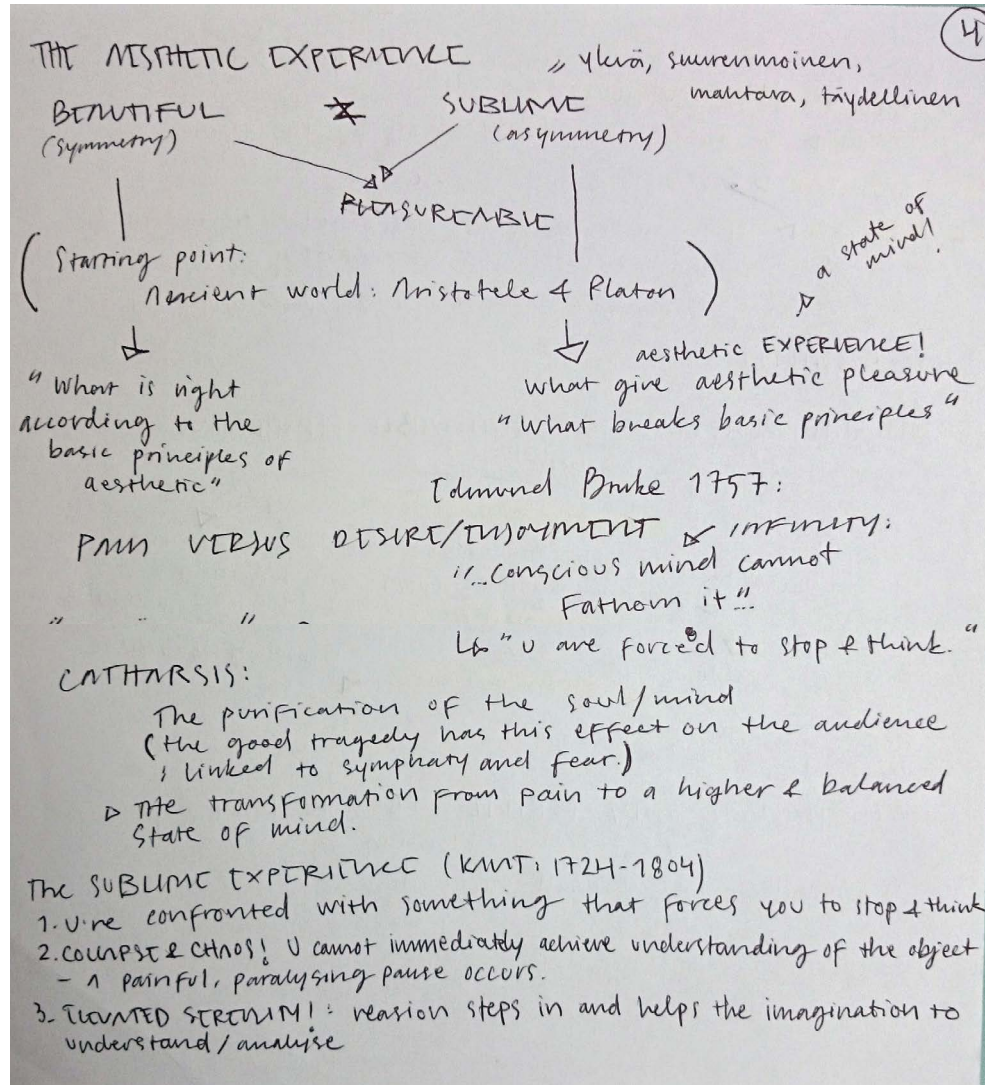 4
THE AESTHETIC EXPERIENCE
" ylevä, suurenmoinen,
mahtava, täydellinen
BEAUTIFUL ≠ SUBLIME
(symmetry) (asymmetry)
PLEASUREABLE
(Starting point:
Ancient world: Aristotele & Platon)
a state of
mind!
"What is right
according to the
basic principles of
aesthetic"
aesthetic EXPERIENCE!
what give aesthetic pleasure
"What breaks basic principles"
Edmund Bruke 1757:
PAIN VERSUS DESIRE/ENJOYMENT INFINITY:
"...conscious mind cannot
Fathom it"..
" " " -
↳ "U are forced to stop & think."
CATHARSIS:
The purification of the soul/mind
(the good tragedy has this effect on the audience
; linked to symphaty and fear.)
▷ THE transformation from pain to a higher & balanced
State of mind.
The SUBLIME EXPERIENCE (KANT: 1724-1804)
1. U're confronted with something that forces you to stop & think
2. COLLAPSE & CHAOS! U cannot immediately achieve understanding of the object
- A painful, paralysing pause occurs.
3. ELEVATED SERENIM!: reasion steps in and helps the imagination to
understand/analyse